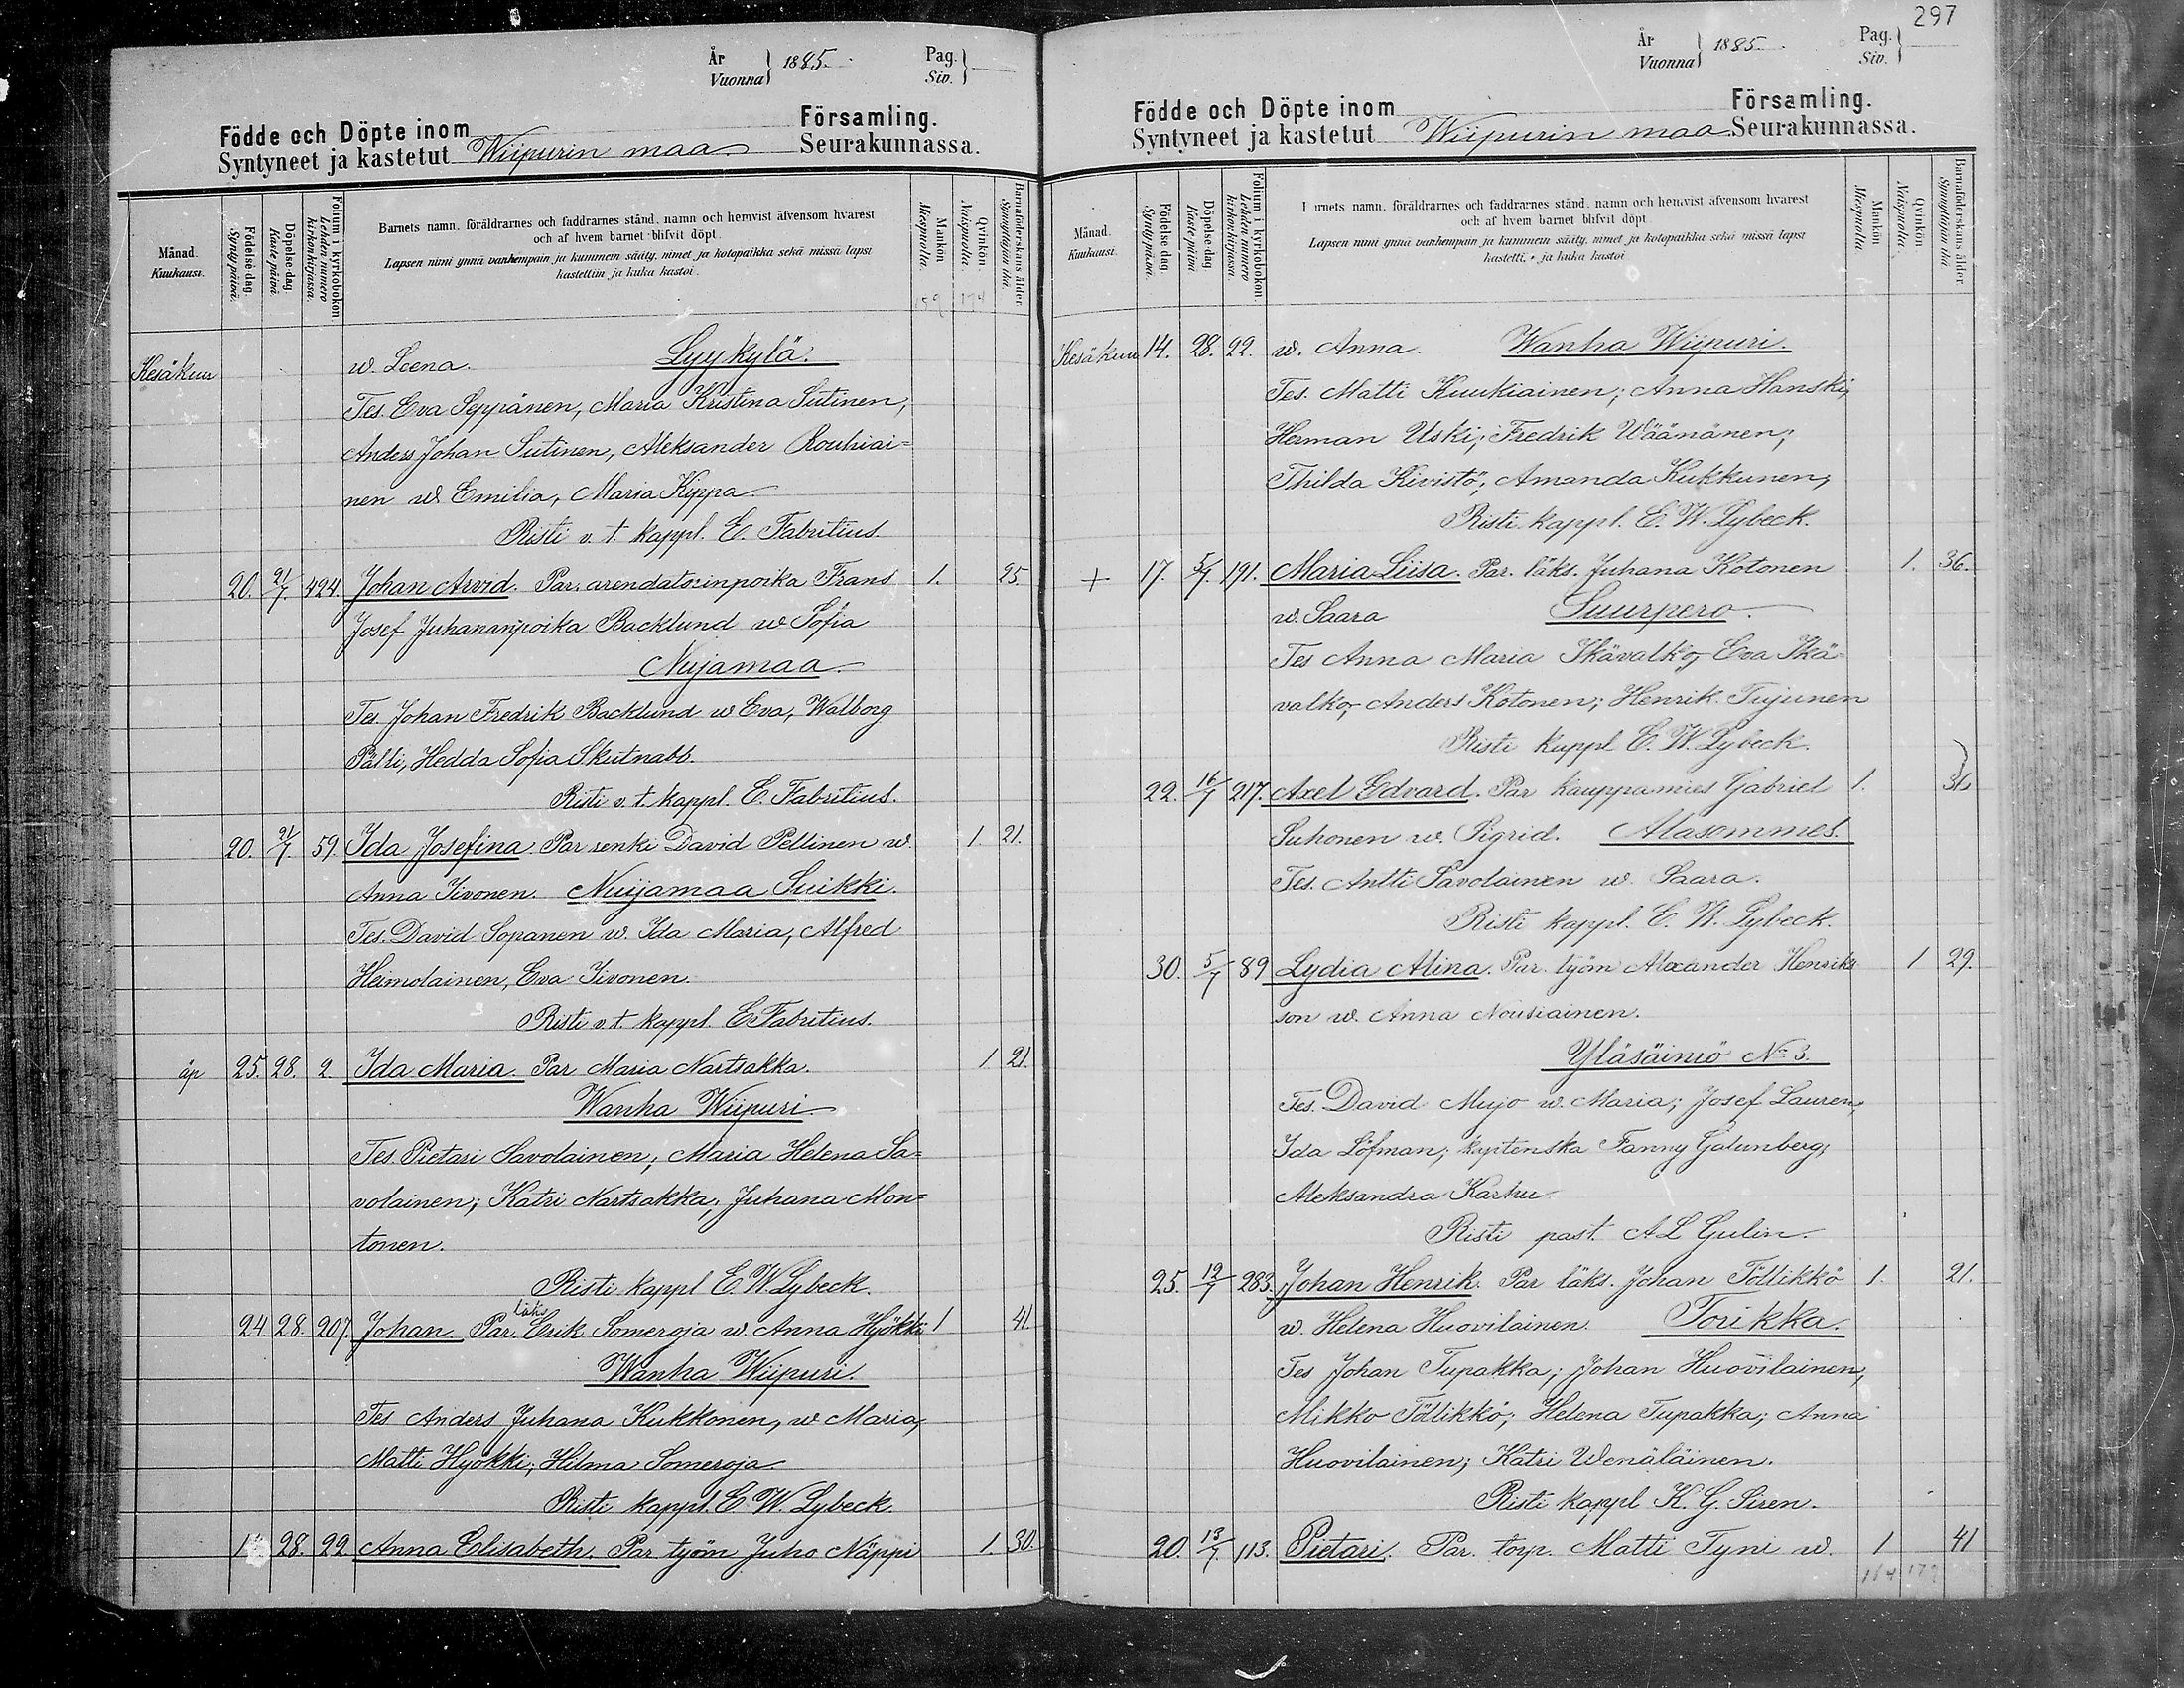 År
Vuonna
1885.
Pag.
Siv.
Födde och Döpte inom
Församling.
Syntyneet ja kastetut Wiipurin maa Seurakunnassa.
Månad.
Kuukausi.
Födelse-dag.
Syntypäivä.
Döpelse-dag.
Kaste päivä.
Folium i kyrkoboken.
Lehden numero
kirkonkirjassa.
Barnets namn, föräldrarnes och faddrarnes stånd, namn och hemvist äfvensom hvarest
och af hvem barnet blifvit döpt.
Lapsen nimi ynnä vanhempain ja kummein sääty, nimet ja kotopaikka sekä missä lapsi
kastettiin ja kuka kastoi.
Mankön.
Miespuolta.
Qvinkön.
Naispuolta.
Barnaföderskans ålder.
Synnyttäjän ikä.
159 174
Kesäkuu
w. Leena. Lyykylä.
Tes. Eva Seppänen, Maria Kristina Sutinen,
Anders Johan Sutinen, Aleksander Rouhiai=
nen w Emilia, Maria Kippa.
Risti v. t. kappl. E. Fabritius.
20. 21/7. 424. Johan Arvid. Par. arendatorinpoika Frans 1. 25.
Josef Juhananpoika Backlund w Sofia
Nuijamaa
Tes. Johan Fredrik Backlund w Eva, Walborg
Pälli, Hedda Sofia Skutnabb.
Risti v. t. kappl. E. Fabritius.
20. 21/7. 59. Ida Josefina. Par renki David Pellinen w. 1. 21.
Anna Iivonen. Nuijamaa Suikki.
Tes. David Sopanen w. Ida Maria, Alfred
Heimolainen, Eva Iivonen.
Risti v. t. kappl. E. Fabritius.
äp 25. 28. 2 Ida Maria. Par Maria Nartsakka. 1 21.
Wanha Wiipuri
Tes. Pietari Savolainen; Maria Helena Sa=
volainen; Katri Nartsakka; Juhana Mon=
tonen.
Risti kappl E. W. Lybeck.
läks
24 28. 207. Johan. Par. Erik Someroja w. Anna Hyökki 1 41
Wanha Wiipuri.
Tes Anders Juhana Kukkonen, w Maria;
Matti Hyökki; Hilma Someroja
Risti kappl. E. W. Lybeck.
28. 22 Anna Elisabeth. Par työm Juho Näppi 1. 30.
297
År
Vuonna
1885.
Pag.
Siv.
Födde och Döpte inom
Församling.
Syntyneet ja kastetut Wiipurin maa Seurakunnassa.
Månad.
Kuukausi.
Födelse dag.
Synty päivä.
Döpelse-dag
Kaste päivä
Folium i kyrkoboken.
Lehden numero
kirkonkirjassa.
rnets namn, föräldrarnes och faddrarnes stånd, namn och hemvist äfvensom hvarest
och af hvem barnet blifvit döpt.
Lapsen nimi ynnä vanhempain ja kummein sääty, nimet ja kotopaikka sekä missä lapsi
kastetti ja kuka kastoi
Mankön
Miespuolta
Qvinkön
Naispuolta
Barnaföderskans ålder
Synnyttäjän ikä
Kesäkuu 14. 28. 22. w. Anna. Wanha Wiipuri.
Tes. Matti Kuukiainen; Anna Hanski,
Herman Uski; Fredrik Wäänänen;
Thilda Kivistö; Amanda Kukkunen,
Risti kappl. E. W. Lybeck.
+ 17. 5/7. 191. Maria Liisa. Par. läks. Juhana Kotonen 1. 36.
w. Saara Suurpero
Tes Anna Maria Ikävalko, Eva Ikä
valko, Anders Kotonen; Henrik Tujunen
Risti kappl E. W. Lybeck.
22. 16/7 217. Axel Edvard. Par kauppamies Gabriel 1.
Suhonen w. Sigrid. Alasommes.
Tes. Antti Savolainen w. Saara.
Risti kappl. E. W. Lybeck.
30. 5/7 89 Lydia Alina. Par. työm Alexander Henriks 1 29.
son w. Anna Nousiainen.
Yläsäiniö No 3.
Tes. David Mujo w. Maria; Josef Lauren,
Ida Löfman; kaptenska Fanny Galunberg;
Aleksandra Karhu.
Risti past. A L Gulin.
25. 12/7 283. Johan Henrik. Par läks. Johan Töllikkö 1. 21.
w. Helena Huovilainen. Torikka.
Tes Johan Tupakka; Johan Huovilainen,
Mikko Töllikkö; Helena Tupakka; Anna
Huovilainen; Katri Wenäläinen.
Risti kappl K. G. Siren.
20. 13/7. 113. Pietari. Par. torp. Matti Tyni w. 1 41